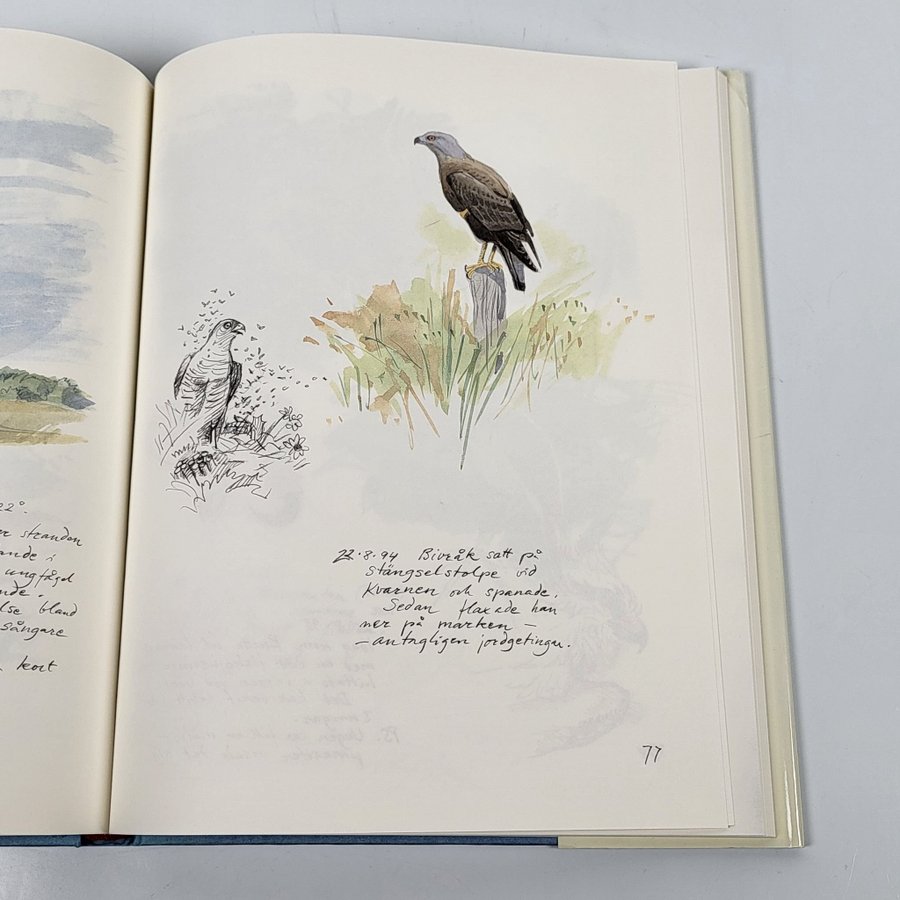 22°.
stranden
ande i
ungfågel
nde.
lse bland
sångare
kort
22.8.94 Bivråk satt på
stängselstolpe vid
Kvarnen och spanade.
Sedan flaxade han
ner på marken –
– antagligen jordgetingar.
77